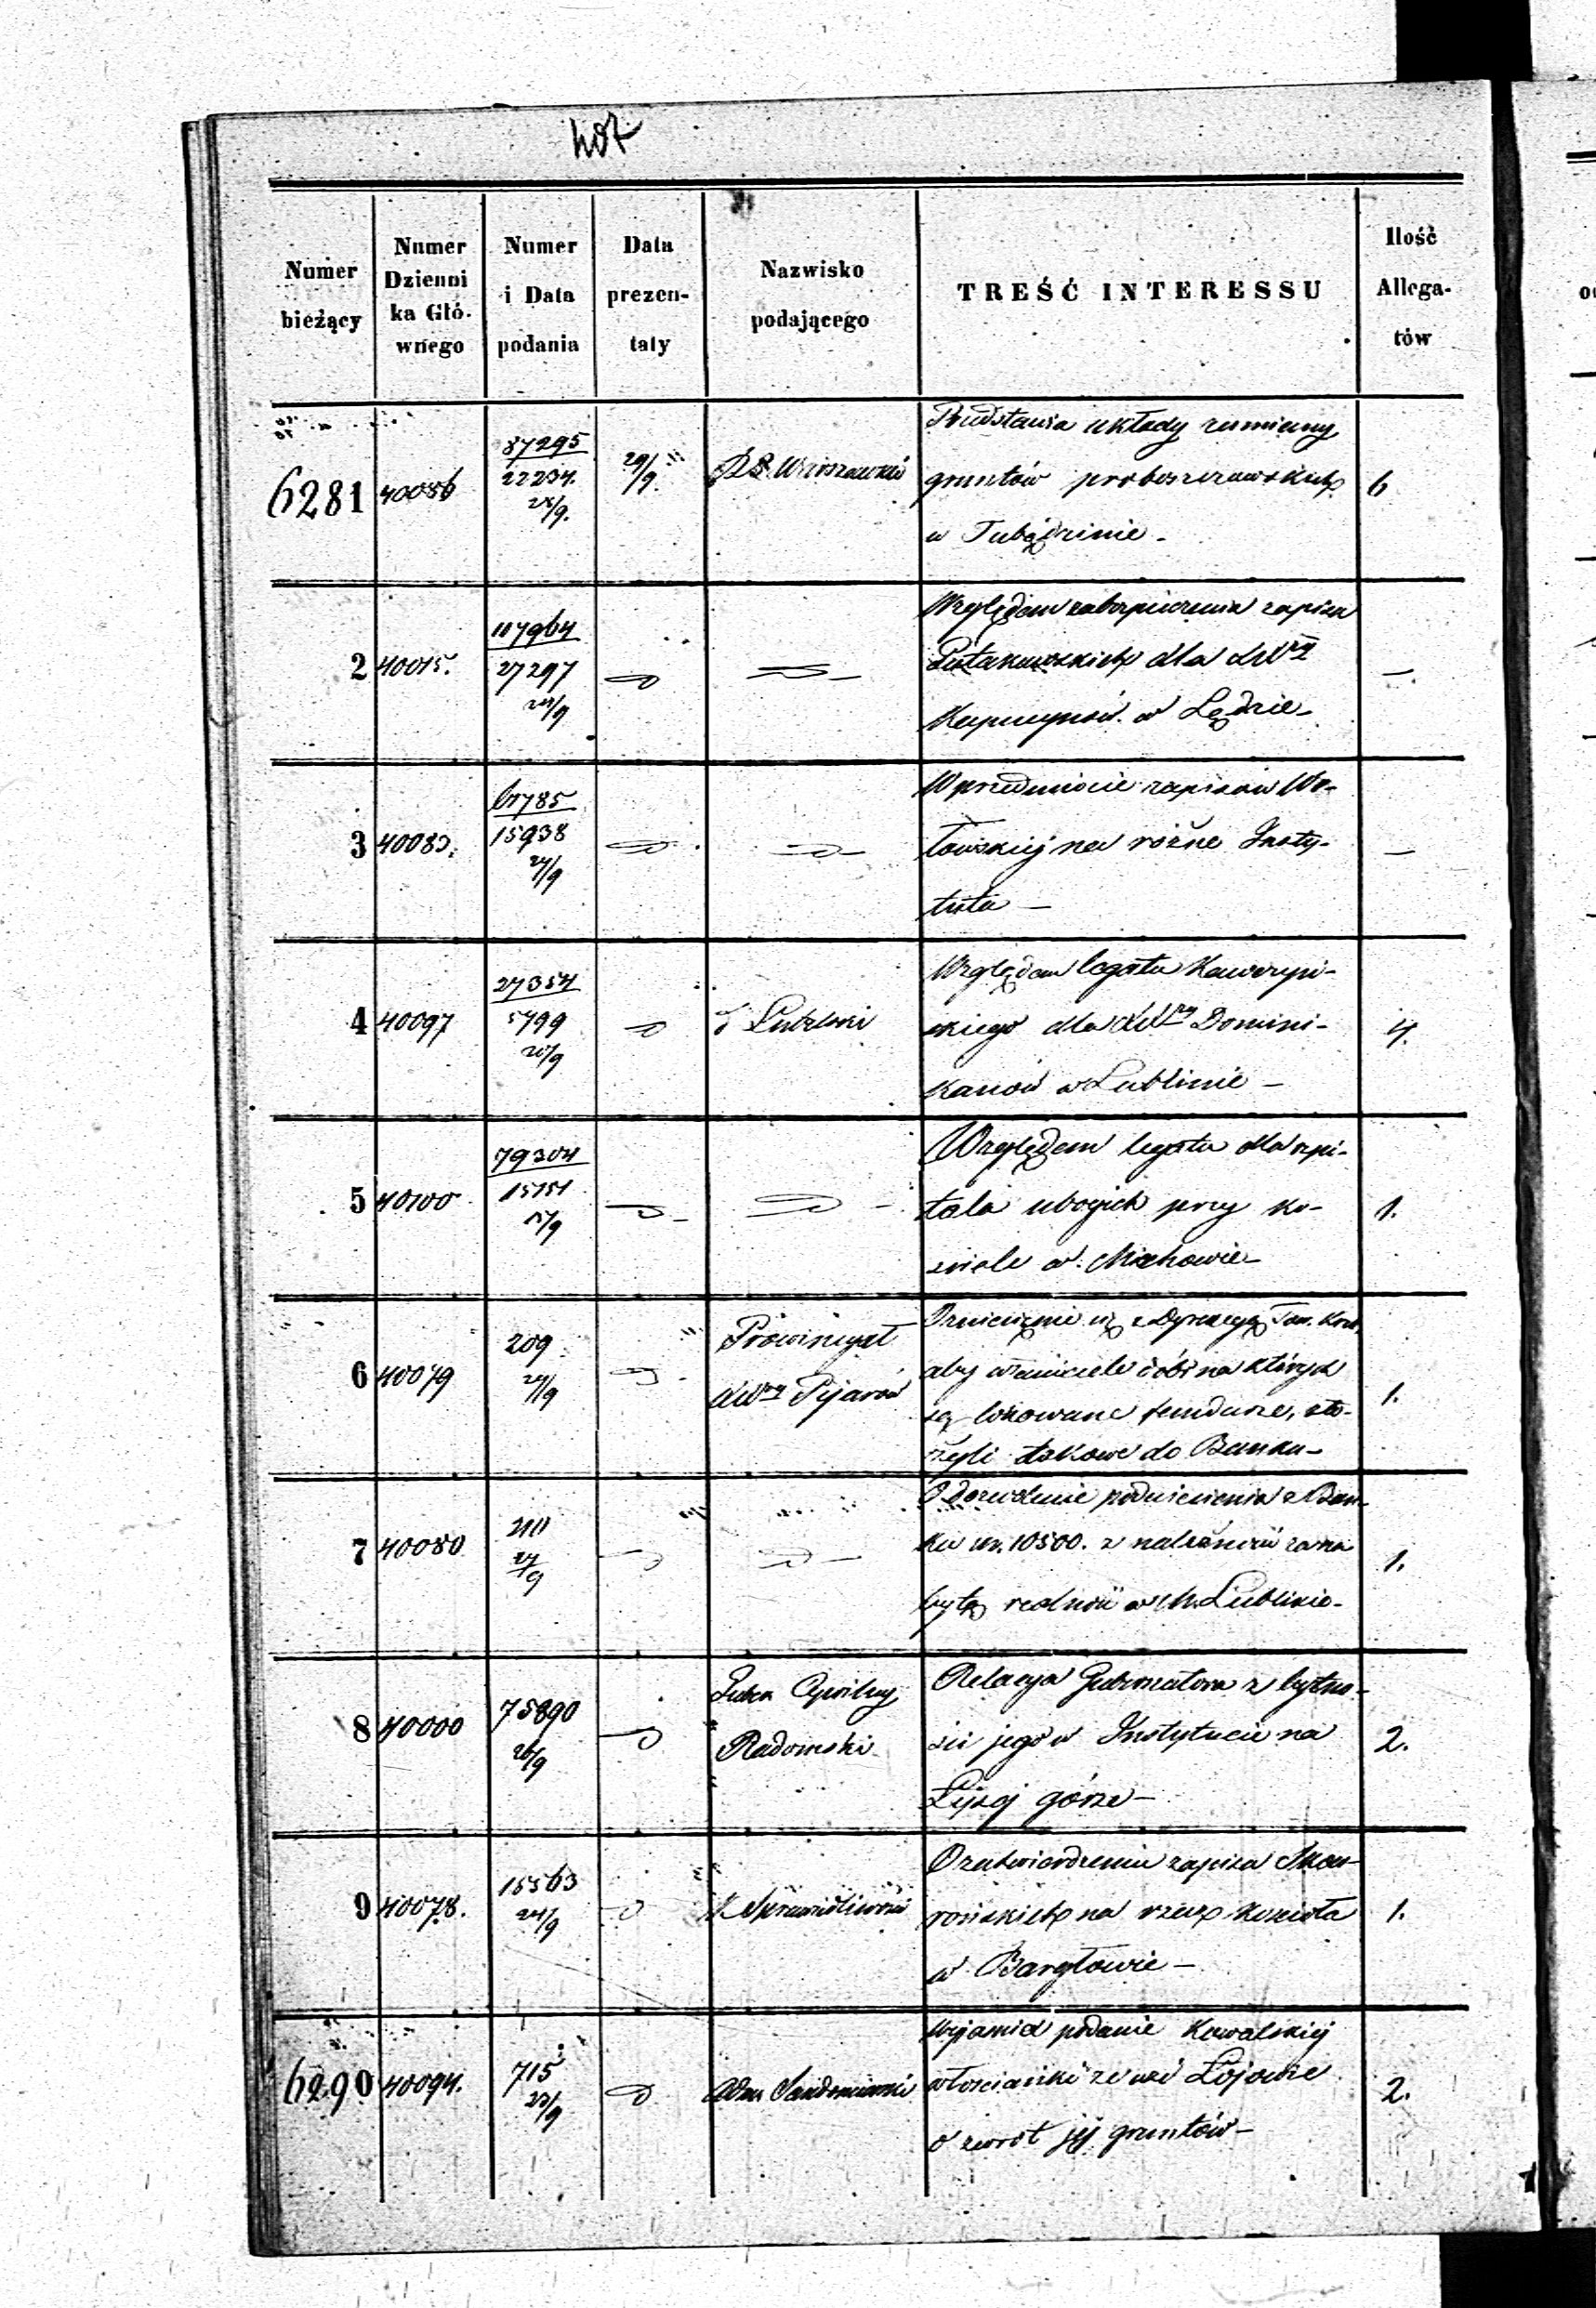 Numer bieżący | Numer Dzienni ka Głó. wnego | Numer i Data podania | Data prezen- taty | Nazwisko podającego | TREŚĆ INTERESSU | Ilość Allega- tów
6281 40086 87295 22234. 29/9 Warszawski 6
Przedstawia układy zamiany
gruntów proboszczowskich
w Tubądzinie -
2 40015. 117964 27297 —
Względem zabezpieczenia zapisu
dla
Kapucynów w Lędzie -
3 15938 —
W przedmiocie zapisów Wo-
łowskiej na różne Insty-
tuta —
4 40097 27354 5799 Lubelski 4.
Względem legatu
skiego dla Domini-
kanów w Lublinie —
5 40100 79304 15151 1.
Względem legatu dla szpi-
tala ubogich przy ko-
ściele w Michowie -
6 40079 209 Prowincyał Pijarów 1.
Zniesienie się z Dyrekcyą Tow. Kred.
aby właściciele dóbr na których
są lokowane fundusze, zło-
żyli takowe do Banku -
7 40080 210 27/9 1.
O dozwolenie podniesienia z Ban-
ku zł. 10500. z należności za na
bytą realność w M. Lublinie -
8 40000 75890 26/9 Guber. Cywilny Radomski 2.
Relacya Gubernatora z bytno-
ści jego w Instytucie na
Łysej górze —
9 40078. 15563 24/9 K. Sprawiedliwości 1.
O zatwierdzenie zapisu
na rzecz kościoła
w Bargłowie —
6290 40094. 715 23/9 Adm. Sandomierski 2.
Wyjaśnia podanie Kowalskiej
włościanki ze wsi
o zwrot jej gruntów —